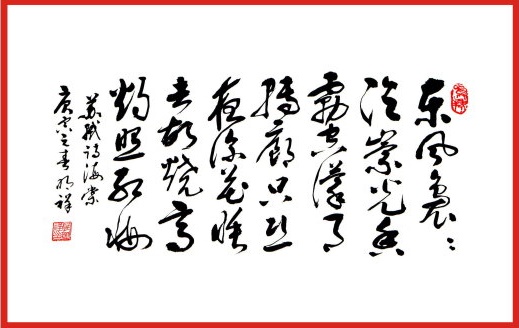 东风袅々
泛崇光香
雾空濛月
转廊只恐
夜深花睡
去故烧高
烛照红妆
苏轼诗海棠
庚寅之春明祥